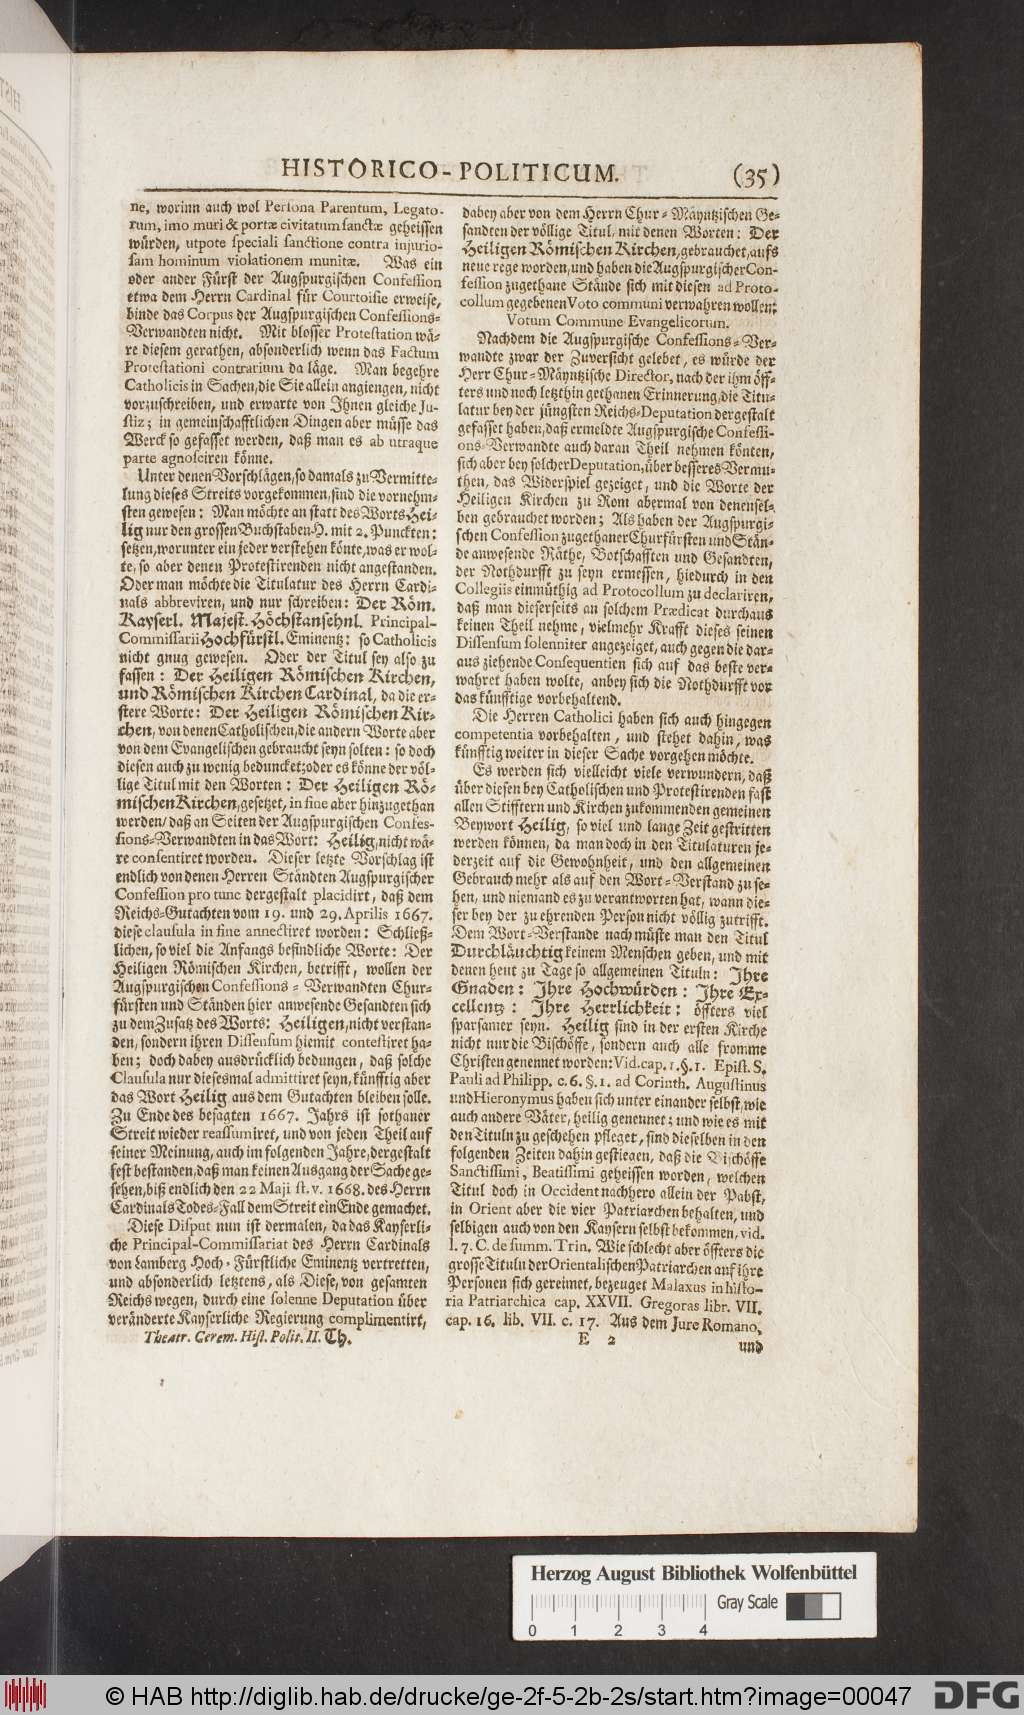 HISTORICO-POLITICUM. (35)
ne, worinn auch wol Persona Parentum, Legato-
rum, imo muri & portæ civitatum sanctæ geheissen
würden, utpote speciali sanctione contra injurio-
sam hominum violationem munitæ. Was ein
oder ander Fürst der Augspurgischen Confession
etwa dem Herrn Cardinal für Courtoisie erweise,
binde das Corpus der Augspurgischen Confessions-
Verwandten nicht. Mit blosser Protestation wä-
re diesem gerathen, absonderlich wenn das Factum
Protestationi contrarium da läge. Man begehre
Catholicis in Sachen, die Sie allein angiengen, nicht
vorzuschreiben, und erwarte von Ihnen gleiche Ju-
stiz; in gemeinschafftlichen Dingen aber müsse das
Werck so gefasset werden, daß man es ab utraque
parte agnosciren könne.
Unter denen Vorschlägen, so damals zu Vermitte-
lung dieses Streits vorgekommen, sind die vornehm-
sten gewesen: Man möchte an statt des Worts Hei-
lig nur den grossen Buchstaben H. mit 2. Punckten:
setzen, worunter ein jeder verstehen könte, was er wol-
te, so aber denen Protestirenden nicht angestanden.
Oder man möchte die Titulatur des Herrn Cardi-
nals abbreviren, und nur schreiben: Der Röm.
Kayserl. Majest. Höchstansehnl. Principal-
Commissarii Hochfürstl. Eminentz: so Catholicis
nicht gnug gewesen. Oder der Titul sey also zu
fassen: Der Heiligen Römischen Kirchen,
und Römischen Kirchen Cardinal, da die er-
stere Worte: Der Heiligen Römischen Kir-
chen, von denen Catholischen, die andern Worte aber
von dem Evangelischen gebraucht seyn solten: so doch
diesen auch zu wenig beduncket; oder es könne der völ-
lige Titul mit den Worten: Der Heiligen Rö-
mischen Kirchen, gesetzet, in fine aber hinzugethan
werden/ daß an Seiten der Augspurgischen Confes-
sions-Verwandten in das Wort: Heilig, nicht wä-
re consentiret worden. Dieser letzte Vorschlag ist
endlich von denen Herren Ständten Augspurgischer
Confession pro tunc dergestalt placidirt, daß dem
Reichs-Gutachten vom 19. und 29. Aprilis 1667.
diese clausula in fine annectiret worden: Schließ-
lichen, so viel die Anfangs befindliche Worte: Der
Heiligen Römischen Kirchen, betrifft, wollen der
Augspurgischen Confessions-Verwandten Chur-
fürsten und Ständen hier anwesende Gesandten sich
zu dem Zusatz des Worts: Heiligen, nicht verstan-
den, sondern ihren Dissensum hiemit contestiret ha-
ben; doch dabey ausdrücklich bedungen, daß solche
Clausula nur diesesmal admittiret seyn, künfftig aber
das Wort Heilig aus dem Gutachten bleiben solle.
Zu Ende des besagten 1667. Jahrs ist sothaner
Streit wieder reassumiret, und von jeden Theil auf
seiner Meinung, auch im folgenden Jahre, dergestalt
fest bestanden, daß man keinen Ausgang der Sache ge-
sehen, biß endlich den 22 Maji st. v. 1668. des Herrn
Cardinals Todes-Fall dem Streit ein Ende gemachet.
Diese Disput nun ist dermalen, da das Kayserli-
che Principal-Commissariat des Herrn Cardinals
von Lamberg Hoch-Fürstliche Eminentz vertretten,
und absonderlich letztens, als Diese, von gesamten
Reichs wegen, durch eine solenne Deputation über
veränderte Kayserliche Regierung complimentirt,
Theatr. Cerem. Hist. Polit. II. Th.
dabey aber von dem Herrn Chur-Mäyntzischen Ge-
sandten der völlige Titul, mit denen Worten: Der
Heiligen Römischen Kirchen, gebrauchet, aufs
neue rege worden, und haben die Augspurgischer Con-
fession zugethane Stände sich mit diesen ad Proto-
collum gegebenen Voto communi verwahren wollen:
Votum Commune Evangelicorum.
Nachdem die Augspurgische Confessions-Ver-
wandte zwar der Zuversicht gelebet, es würde der
Herr Chur-Mäyntzische Director, nach der ihm öff-
ters und noch letzthin gethanen Erinnerung, die Titu-
latur bey der jüngsten Reichs-Deputation dergestalt
gefasset haben, daß ermeldte Augspurgische Confessi-
ons-Verwandte auch daran Theil nehmen könten,
sich aber bey solcher Deputation, über besseres Vermu-
then, das Widerspiel gezeiget, und die Worte der
Heiligen Kirchen zu Rom abermal von denensel-
ben gebrauchet worden; Als haben der Augspurgi-
schen Confession zugethaner Churfürsten und Stän-
de anwesende Räthe, Botschafften und Gesandten,
der Nothdurfft zu seyn ermessen, hiedurch in den
Collegiis einmüthig ad Protocollum zu declariren,
daß man dieserseits an solchem Prædicat durchaus
keinen Theil nehme, vielmehr Krafft dieses seinen
Dissensum solenniter angezeiget, auch gegen die dar-
aus ziehende Consequentien sich auf das beste ver-
wahret haben wolte, anbey sich die Nothdurfft vor
das künfftige vorbehaltend.
Die Herren Catholici haben sich auch hingegen
competentia vorbehalten, und stehet dahin, was
künfftig weiter in dieser Sache vorgehen möchte.
Es werden sich vielleicht viele verwundern, daß
über diesen bey Catholischen und Protestirenden fast
allen Stifftern und Kirchen zukommenden gemeinen
Beywort Heilig, so viel und lange Zeit gestritten
werden können, da man doch in den Titulaturen je-
derzeit auf die Gewohnheit, und den allgemeinen
Gebrauch mehr als auf den Wort-Verstand zu se-
hen, und niemand es zu verantworten hat, wann die-
ser bey der zu ehrenden Person nicht völlig zutrifft.
Dem Wort-Verstande nach müste man den Titul
Durchläuchtig keinem Menschen geben, und mit
denen heut zu Tage so allgemeinen Tituln: Ihre
Gnaden: Ihre Hochwürden: Ihre Ex-
cellentz: Ihre Herrlichkeit: öffters viel
sparsamer seyn. Heilig sind in der ersten Kirche
nicht nur die Bischöffe, sondern auch alle fromme
Christen genennet worden: Vid. cap. 1. §. 1. Epist. S.
Pauli ad Philipp. c. 6. §. 1. ad Corinth. Augustinus
und Hieronymus haben sich unter einander selbst, wie
auch andere Väter, heilig genennet; und wie es mit
den Tituln zu geschehen pfleget, sind dieselben in den
folgenden Zeiten dahin gestiegen, daß die Bischöffe
Sanctissimi, Beatissimi geheissen worden, welchen
Titul doch in Occident nachhero allein der Pabst,
in Orient aber die vier Patriarchen behalten, und
selbigen auch von den Kaysern selbst bekommen, vid.
l. 7. C. de summ. Trin. Wie schlecht aber öffters die
grosse Tituln der Orientalischen Patriarchen auf ihre
Personen sich gereimet, bezeuget Malaxus in histo-
ria Patriarchica cap. XXVII. Gregoras libr. VII.
cap. 16. lib. VII. c. 17. Aus dem Jure Romano,
E 2
und
Herzog August Bibliothek Wolfenbüttel
Gray Scale
0 1 2 3 4
© HAB http://diglib.hab.de/drucke/ge-2f-5-2b-2s/start.htm?image=00047
DFG